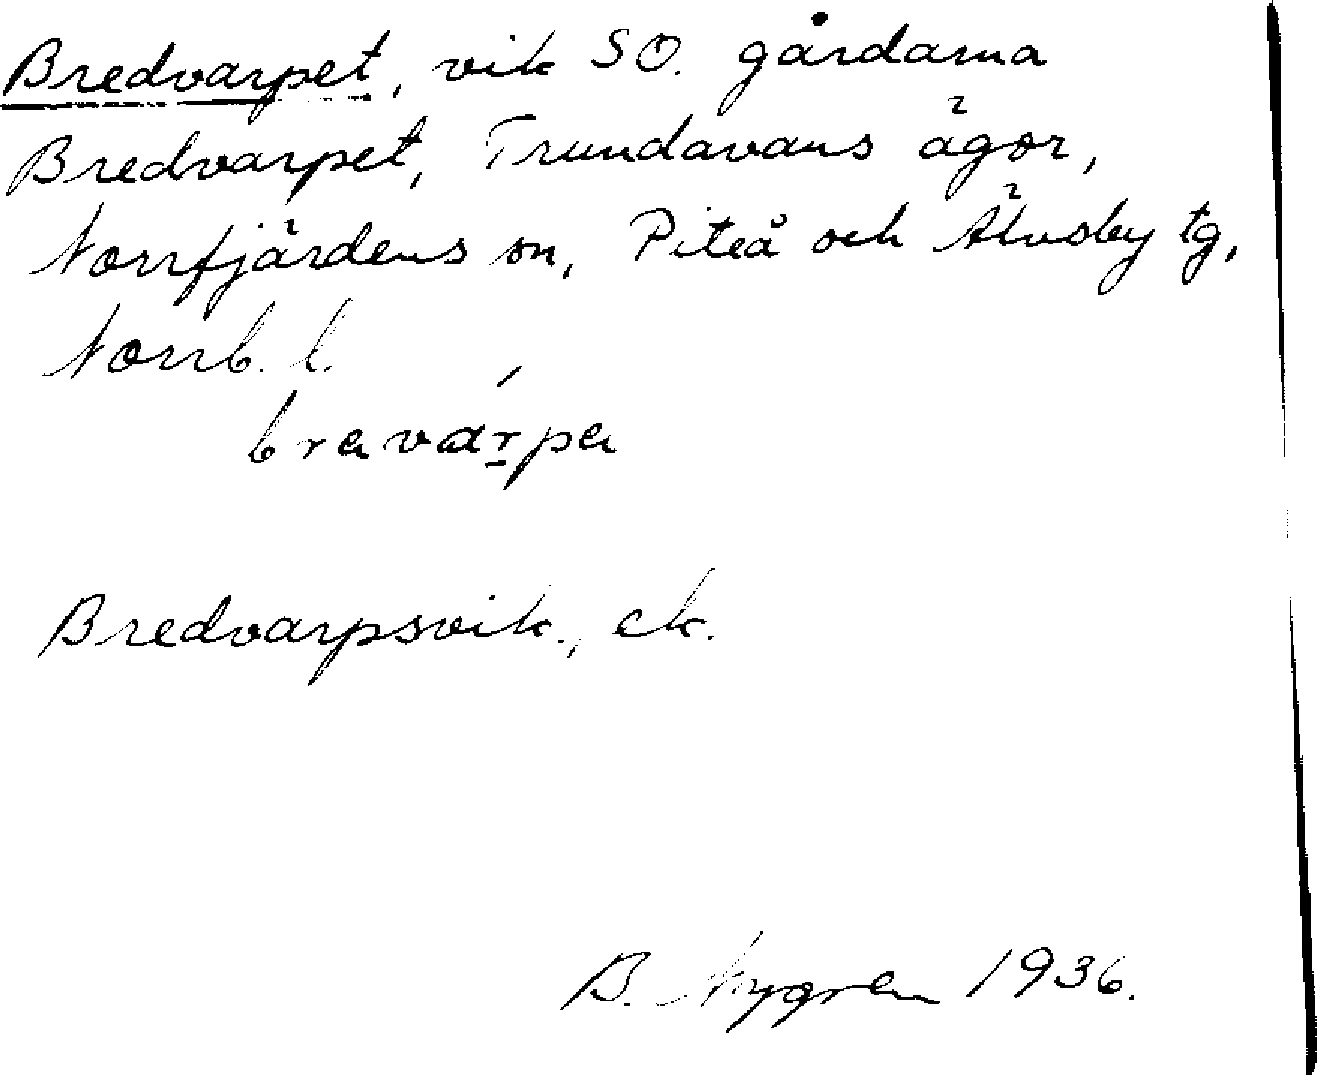 Bredvarpet, vik SO. gårdarna
Bredvarpet, Trundavans ägor,
Norrfjärdens sn, Piteå och Älvsby tg,
Norrb. l.
bravarpa
Bredvarpsvik., ek.
B. Nygren 1936.